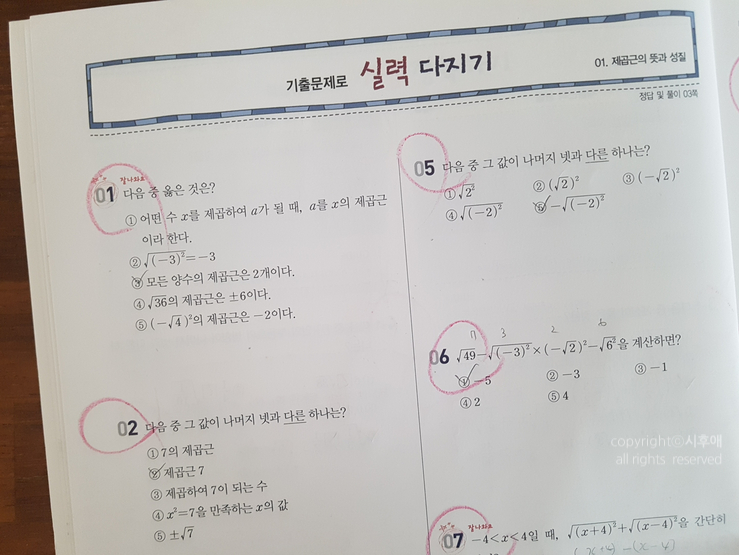 기출문제로 실력 다지기
01. 제곱근의 뜻과 성질
정답 및 풀이 03쪽
잘 나와요
01 다음 중 옳은 것은?
① 어떤 수 x를 제곱하여 a가 될 때, a를 x의 제곱근
이라 한다.
② √(-3)²=-3
③ 모든 양수의 제곱근은 2개이다.
④ √36의 제곱근은 ±6이다.
⑤ (-√4)²의 제곱근은 -2이다.
02 다음 중 그 값이 나머지 넷과 다른 하나는?
① 7의 제곱근
② 제곱근 7
③ 제곱하여 7이 되는 수
④ x²=7을 만족하는 x의 값
⑤ ±√7
05 다음 중 그 값이 나머지 넷과 다른 하나는?
① √2² ② (√2)² ③ (-√2)²
④ √(-2)² ⑤ -√(-2)²
7 3 2 6
06 √49-√(-3)²×(-√2)²-√6²을 계산하면?
① -5 ② -3 ③ -1
④ 2 ⑤ 4
copyrightⓒ시후애
all rights reserved
잘 나와요
07 -4<x<4일 때, √(x+4)²+√(x-4)²을 간단히
(x+4) -(x-4)